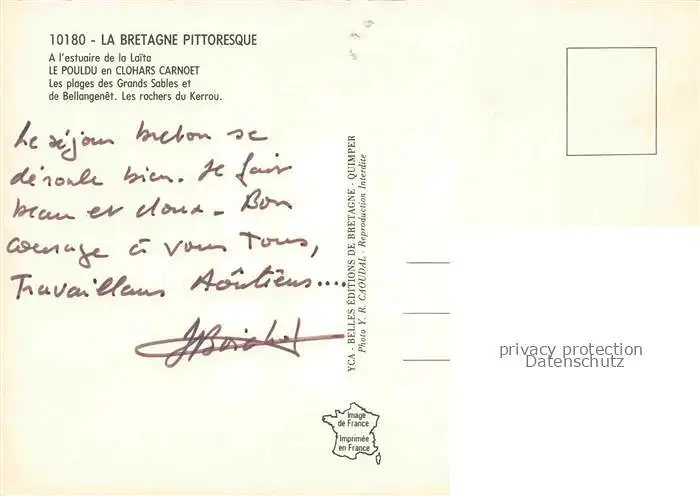 10180 - LA BRETAGNE PITTORESQUE
A l'estuaire de la Laïta
LE POULDU en CLOHARS CARNOET
Les plages des Grands Sables et
de Bellangenêt. Les rochers du Kerrou.
Le séjour breton se
déroule bien. Il fait
beau et doux. Bon
courage à vous Tous,
Travailleurs Aoûtiens....
YCA - BELLES ÉDITIONS DE BRETAGNE - QUIMPER
Photo Y. R. CAOUDAL - Reproduction Interdite
privacy protection
Datenschutz
Image
de France
Imprimée
en France